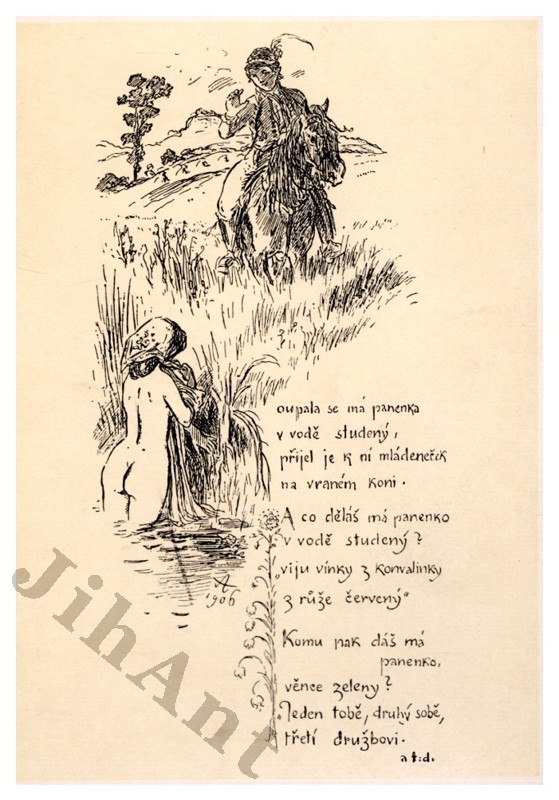 oupala se má panenka
v vodě studený,
přijel je k ní mládeneček
na vraném koni.
A co děláš má panenko
v vodě studený?
viju vínky z konvalinky
z růže červený"
Komu pak dáš má
panenko,
věnce zeleny?
"Jeden tobě, druhý sobě,
třetí družbovi.
a t:d.
A
1906
JihAnt